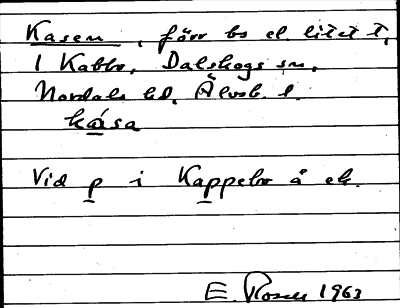 Kasen, förr bs el. litet t.
I Kabbo, Dalskogs sn,
Nordals hd, Älvsb. l.
kása
Vid p i Kappebo å ek.
E. Rosen 1963